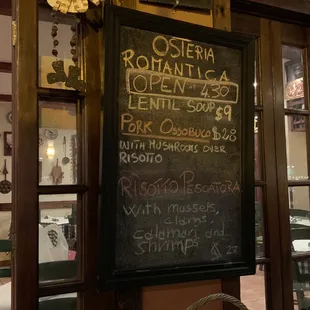 OSTERIA
ROMANTICA
OPEN AT 4.30
LENTIL SOUP $9
PORK OSSOBUCO $28
WITH MUSHROOMS OVER
RISOTTO
RISOTTO PESCATORA
with mussels,
clams,
calamari and
shrimps 27